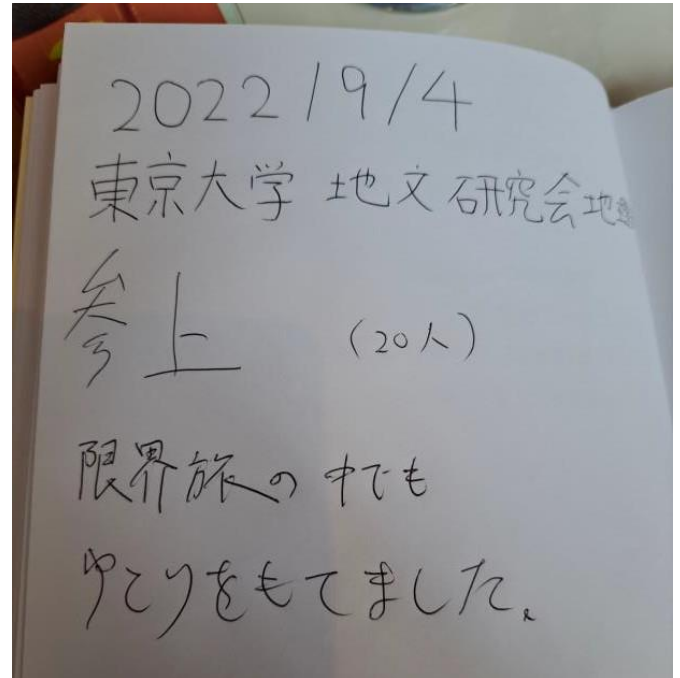 2022/9/4
東京大学 地文研究会地理
参上 (20人)
限界旅の中でも
ゆとりをもてました。